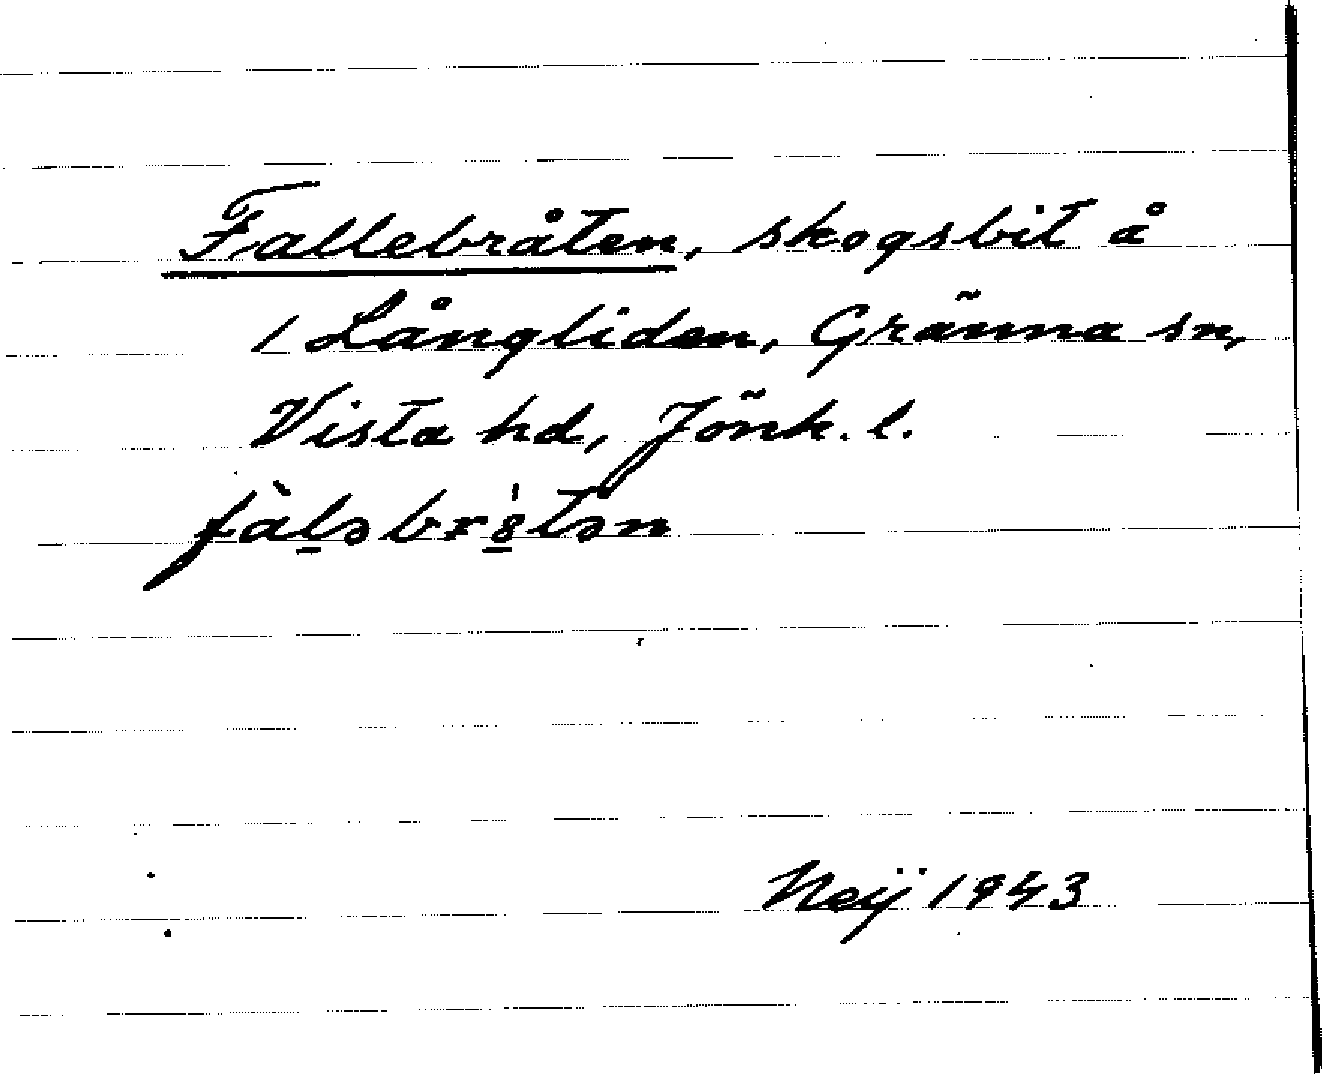 Fallebråten, skogsbit å
1 Långliden, Gränna sn,
Vista hd, Jönk. l.
fàl̠əbr8̠̍tən
Neij 1943